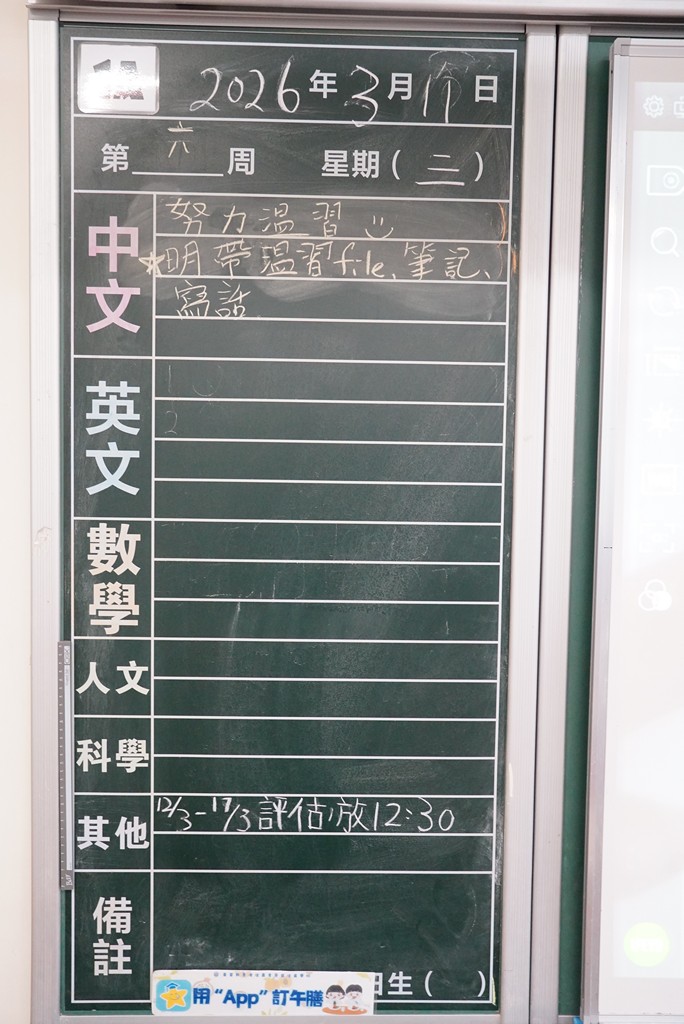 2026年3月11日
第六周 星期(三)
中文
努力溫習
★明帶溫習file、筆記、
寫話
英文
1
2
數學
人文
科學
其他
12/3-17/3評估,放12:30
備註
用“App”訂午膳
日生( )